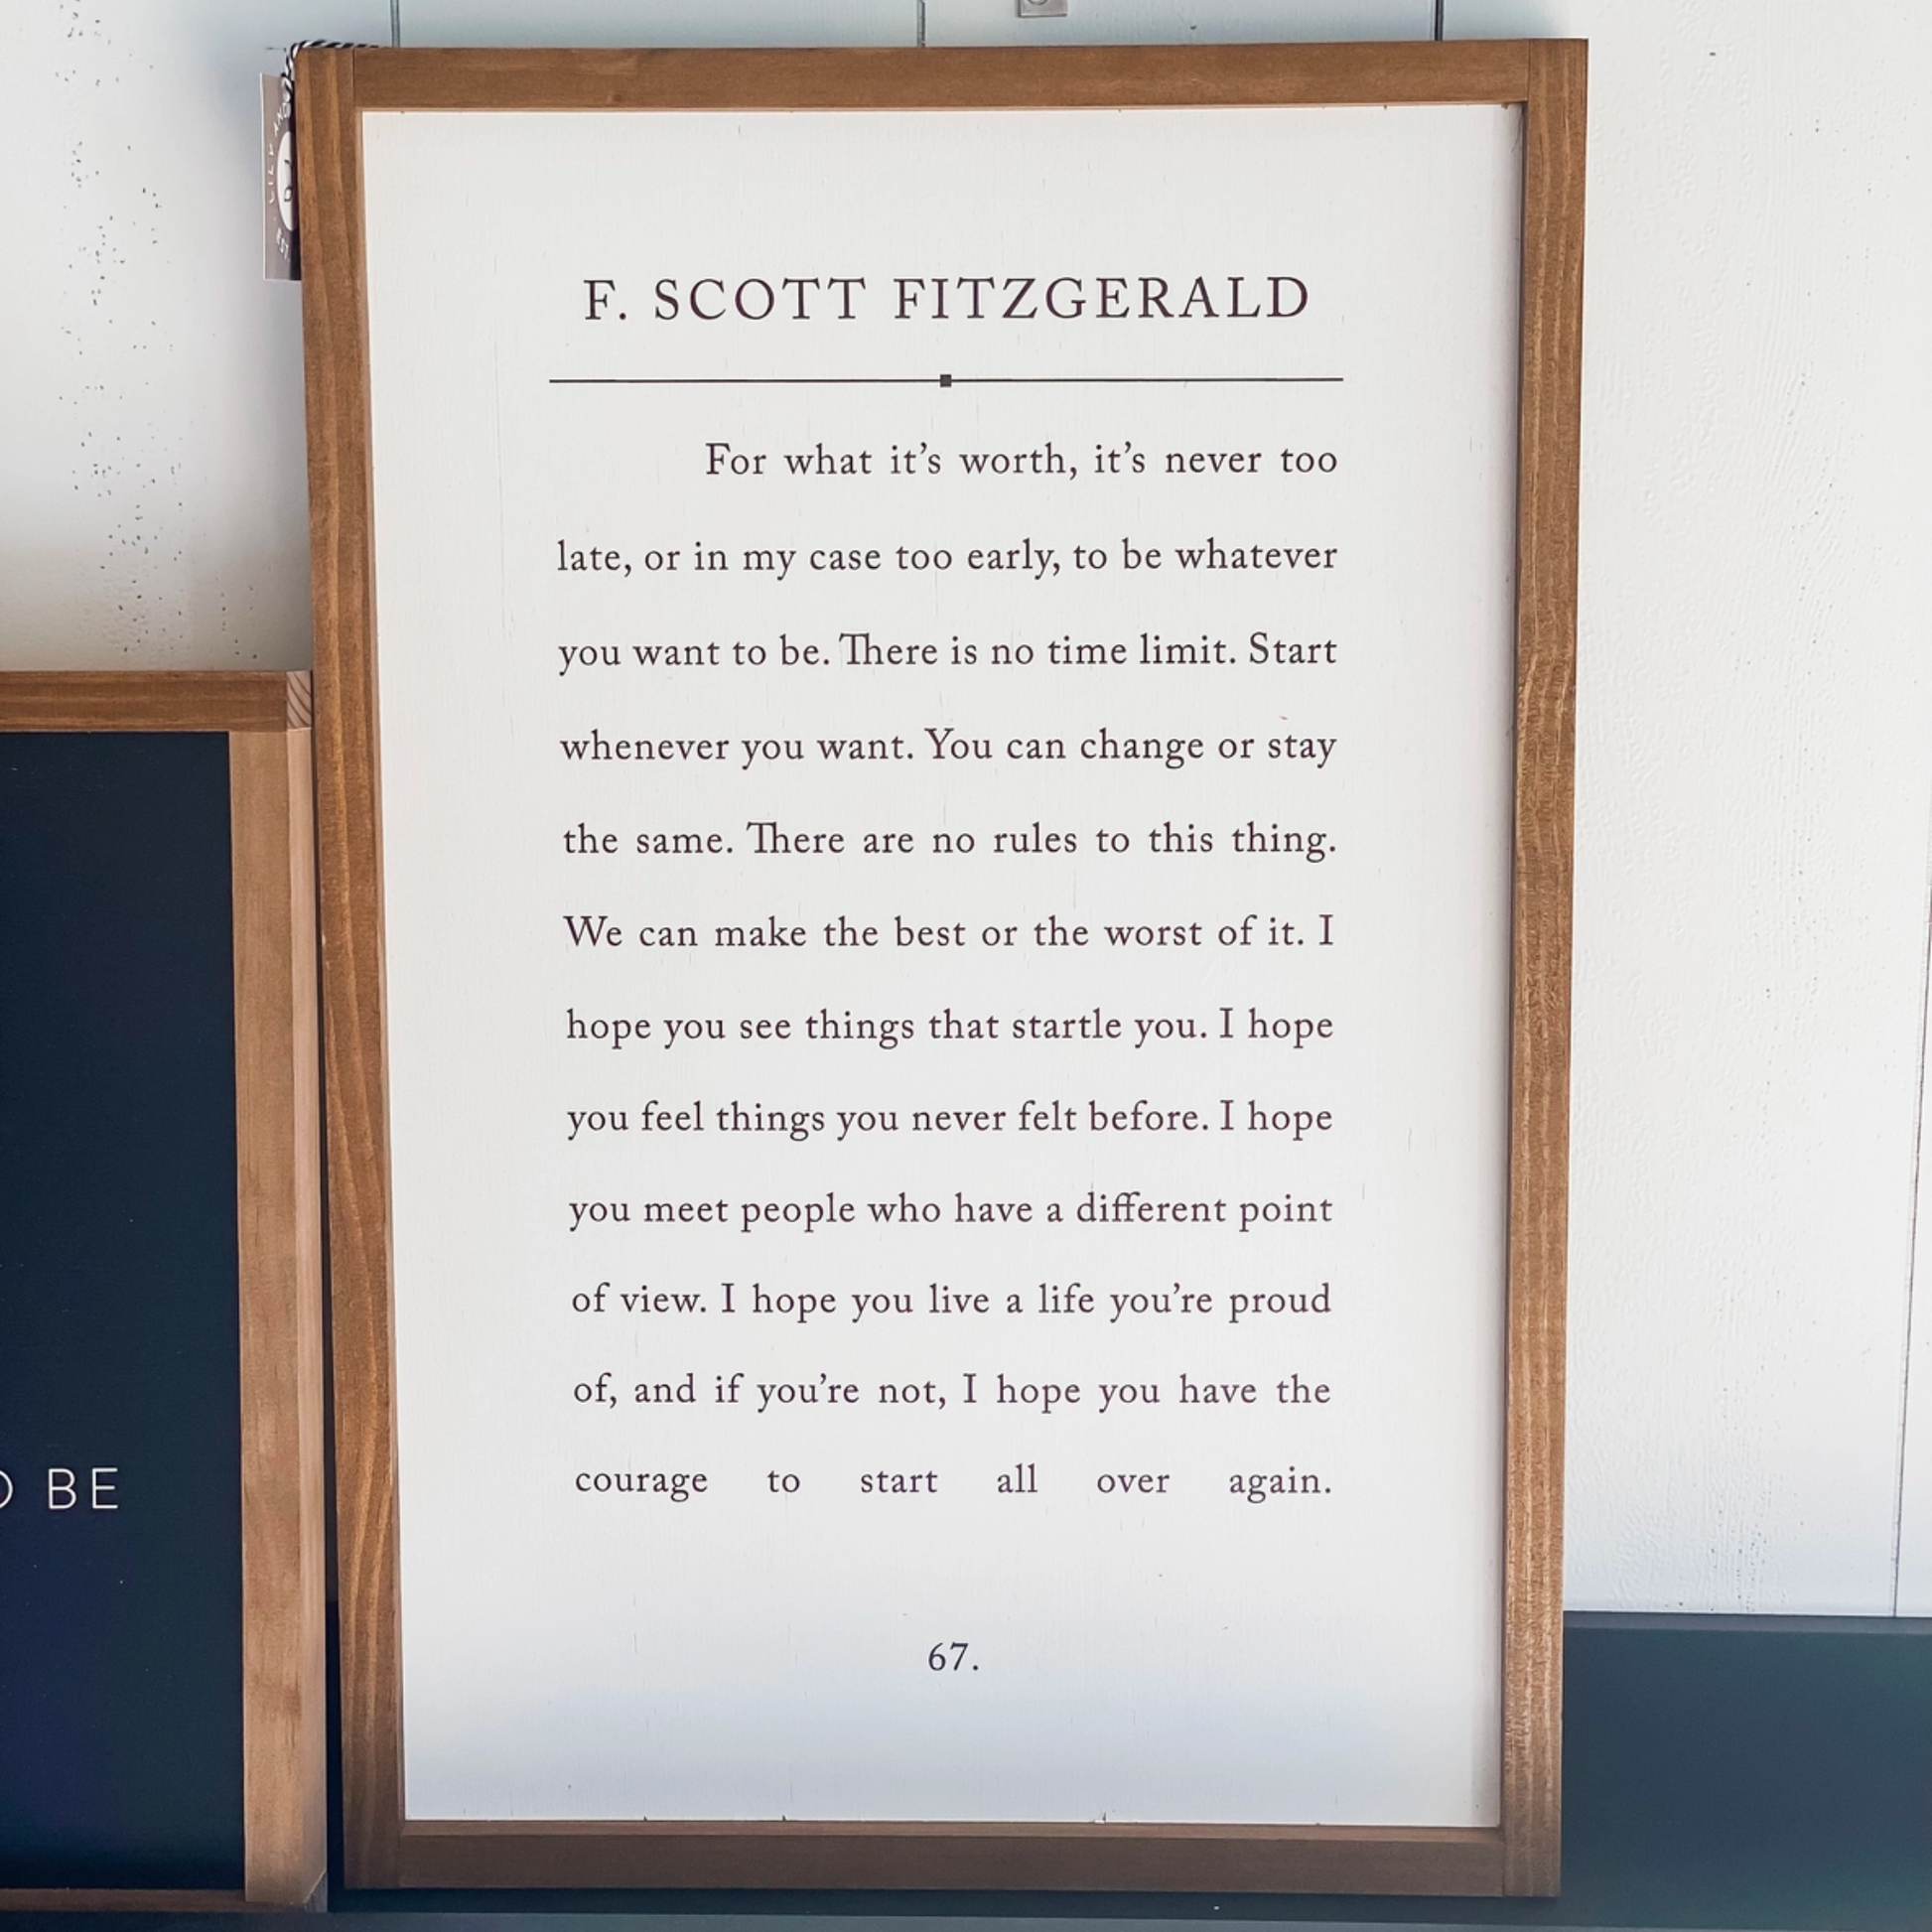 F. SCOTT FITZGERALD
For what it’s worth, it’s never too
late, or in my case too early, to be whatever
you want to be. There is no time limit. Start
whenever you want. You can change or stay
the same. There are no rules to this thing.
We can make the best or the worst of it. I
hope you see things that startle you. I hope
you feel things you never felt before. I hope
you meet people who have a different point
of view. I hope you live a life you’re proud
of, and if you’re not, I hope you have the
courage to start all over again.
67.
BE